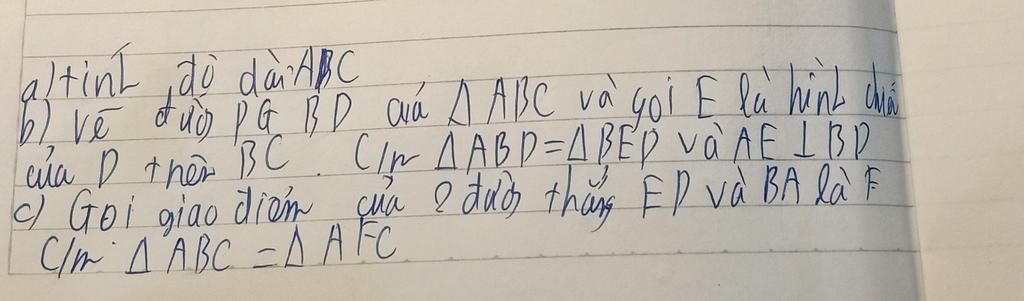 a) tính độ dài AC
b) vẽ đườg PG BD của Δ ABC và gọi E là hình chiếu
của D trên BC. C/m Δ ABD = Δ BED và AE ⊥ BD
c) Gọi giao điểm của 2 đườg thẳng ED và BA là F
C/m Δ ABC = Δ AFC